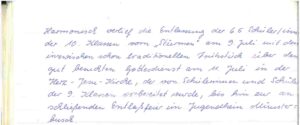 Harmonisch verlief die Entlassung der 65 Schüler/innen
der 10. Klassen vom „Stürmen“ am 9. Juli mit dem
inzwischen schon traditionellen Frühstück über den
gut besuchten Gottesdienst am 11. Juli in der
Herz-Jesu-Kirche, der von Schülerinnen und Schülern
der 9. Klassen vorbereitet wurde, bis hin zur an-
schließenden Entlaßfeier im Jugendheim Münster-
busch.